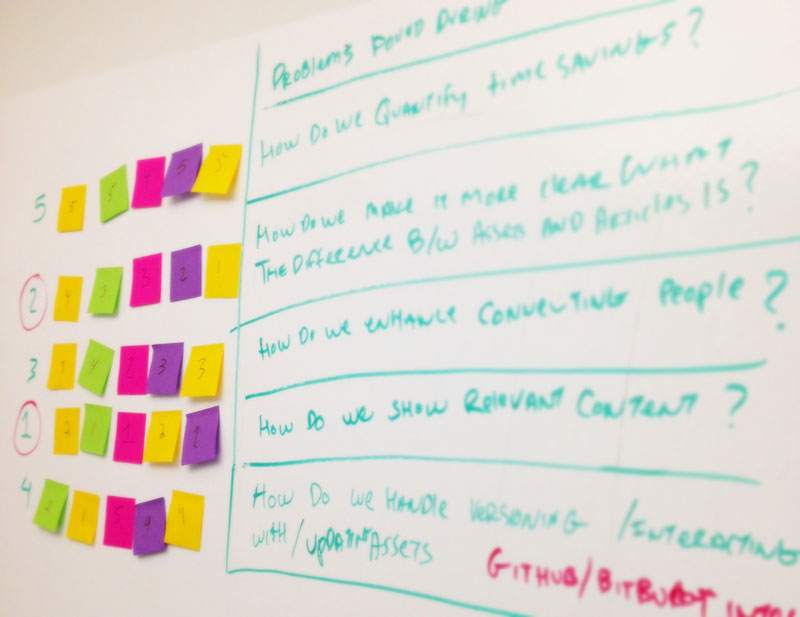 Problems Found During
5 5 5 4 5 5
How Do we Quantify time savings?
2 4 3 3 2 1
How Do we make it more clear what
the difference B/W Assets and Articles Is?
3 4 2 3 3
How Do we enhance connecting people?
1 2 1 1 2
How Do we show Relevant Content?
4 2 1 5 4 4
How Do we Handle Versioning / Interacting
with / updating Assets
GitHub/BitBucket